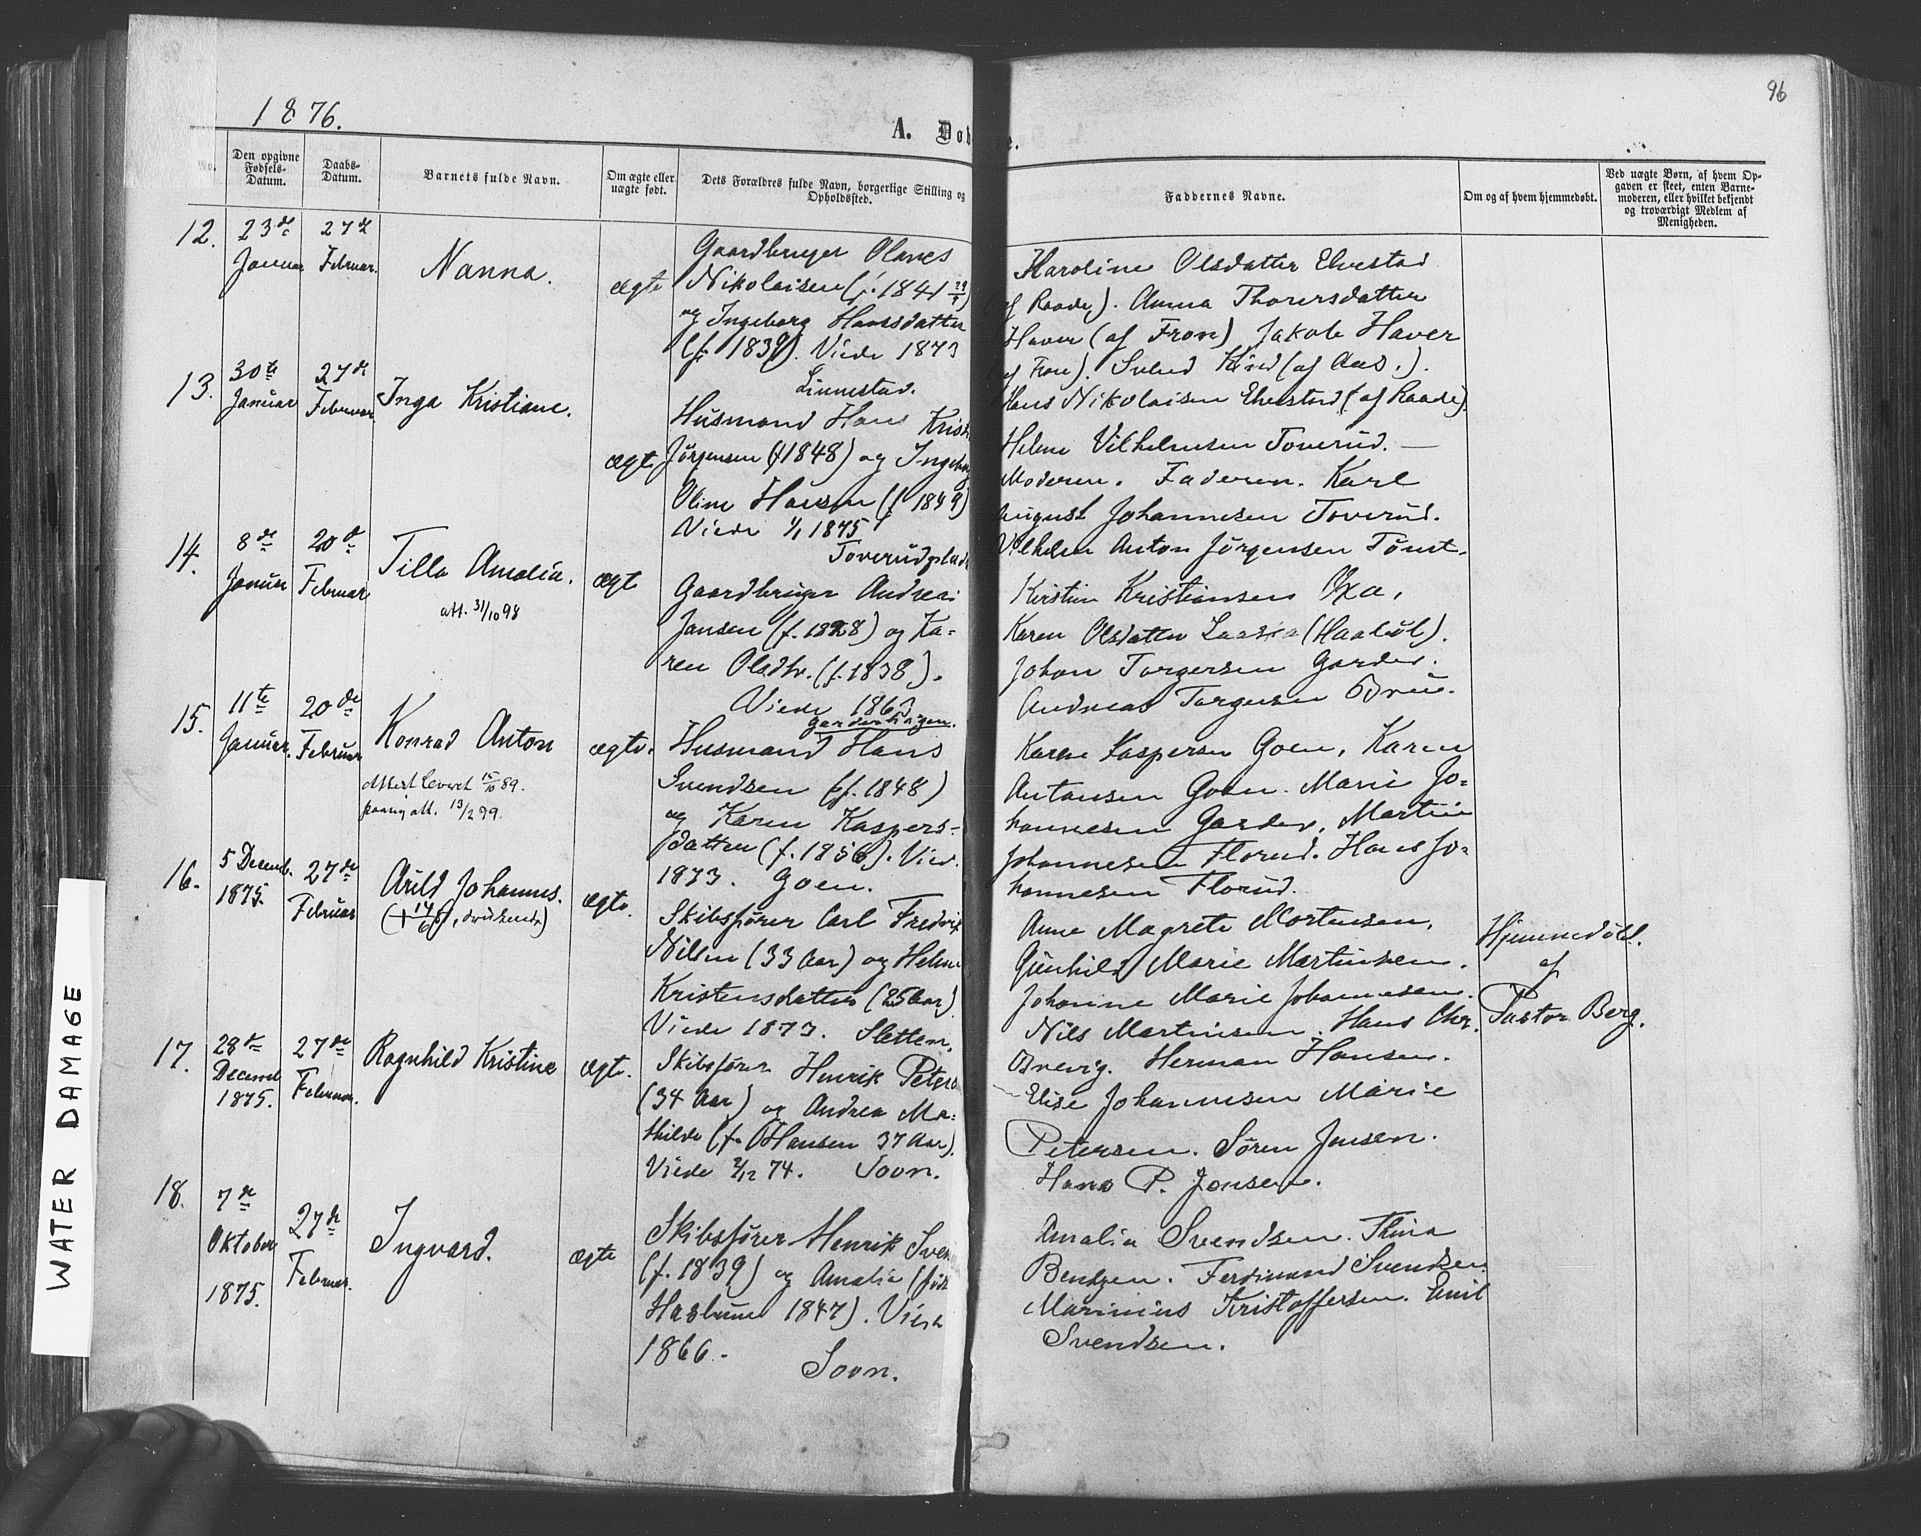 96
1876.
A. Dob
e.
No.
Den opgivne Fødsels-Datum.
Daabs-Datum.
Barnets fulde Navn.
Om ægte eller uægte født.
Dets Forældres fulde Navn, borgerlige Stilling og Opholdssted.
Faddernes Navne.
Om og af hvem hjemmedøbt.
Ved uægte Børn, af hvem Opgaven er skeet, enten Barnemoderen, eller hvilket bekjendt og troværdigt Medlem af Menigheden.
12.
23de Januar
27de Februar.
Nanna.
ægte
Gaardbruger Olaves
Nikolaisen (f. 1841
og Ingeborg Hansdatter
(f. 1839). Viede 1873
Linnestad.
Karoline Olsdatter Elvestad
(af Raade). Anna Thorersdatter
Haver (af Fron) Jakob Haver
(af Fron). Kind (af Aas.).
Hans Nikolaisen Elvestad (af Raade).
13.
30te Januar
27de Februar
Inga Kristiane.
ægte
Husmand Hans Krist
Jørgensen (f 1848) og Ingeborg
Oline Hansen (f 1849)
Viede 1/1 1875
Toverudplads
Helene Vilhelmsen Toverud. —
Moderen. Faderen. Karl
August Johannesen Toverud.
Vilhelm Anton Jørgensen
14.
8de Januar
20de Februar
Tilla Amalia.
att. 31/10 98
ægte
Gaardbruger Andreas
Jansen (f. 1828) og Ka-
ren Olsdtr. (f. 1838).
Viede 1863
Garderhagen.
Kirstin Kristiansen Oxa,
Karen Olsdatter (Haabøl).
Johan Torgersen Garder.
Andreas Torgersen Brue.
15.
11te Januar.
20de Februar
Konrad Anton
Attest leveret 15/10 89.
paany att. 13/2 99.
ægte.
Husmand Hans
Svendsen (f. 1848)
og Karen Kaspers-
datter (f. 1856). Vied.
1873. Goen.
Karen Kaspersen Goen, Karen
Antonsen Goen. Marie Jo-
hannesen Garder, Martin
Johannesen Florud. Hans Jo-
hannesen Florud.
16.
5 Decemb. 1875.
27de Februar
Arild Johannes.
ægte.
Skibsfører Carl Fredrik
Nilsen (33 Aar) og Helene
Kristensdatter (25 Aar)
Viede 1873. Sletten.
Anne Magrete Mortensen.
Gunhild Marie Martinsen.
Johanne Marie Johannesen.
Nils Martinsen. Hans Chr.
Brevig. Herman Hansen.
Hjemmedøbt.
af
Pastor Berg.
17.
28de Decemb 1875.
27de Februar.
Ragnhild Kristine
ægte.
Skibsfører Henrik Peters
(34 Aar) og Andrea Ma-
thilde (f. Hansen 37 Aar).
Viede 2/12 74. Soon.
Elise Johannesen Marie
Petersen. Søren Jensen.
Hans P. Jensen.
18.
7de Oktober 1875.
27de Februar.
Ingvard.
ægte
Skibsfører Henrik Sven
(f. 1839) og Amalia (født
Hasbune 1847). Viede
1866.
Soon.
Amalia Svendsen. Thina
Bendzen. Ferdinand Svendsen.
Marinius Kristoffersen. Emil
Svendsen.
WATER DAMAGE